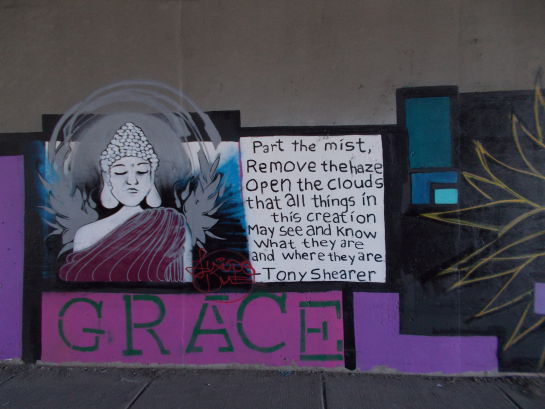 Part the mist,
Remove the haze
Open the clouds
that all things in
this creation
May see and know
What they are
and where they are
- Tony Shearer
GRACE